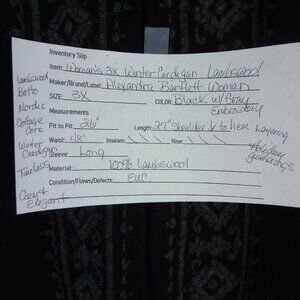 Inventory Slip
Item: Woman's 3X Winter Cardigan Lambswool
Maker/Brand/Label: Alexandra Bartlett Woman
SIZE: 3X
COLOR: Black w/ Gray
Embroidery
Measurements
Pit to Pit: 26"
Length: 27" Shoulder to hem
Waist: 48"
Inseam:
Rise:
Sleeve: Long
Material: 100% Lambswool
Condition/Flaws/Defects: EUC
Lambswool
Boho
Nordic
Cottage
Core
Winter
Cardigan
Timeless
Cozy &
Elegant
Layering
Holiday